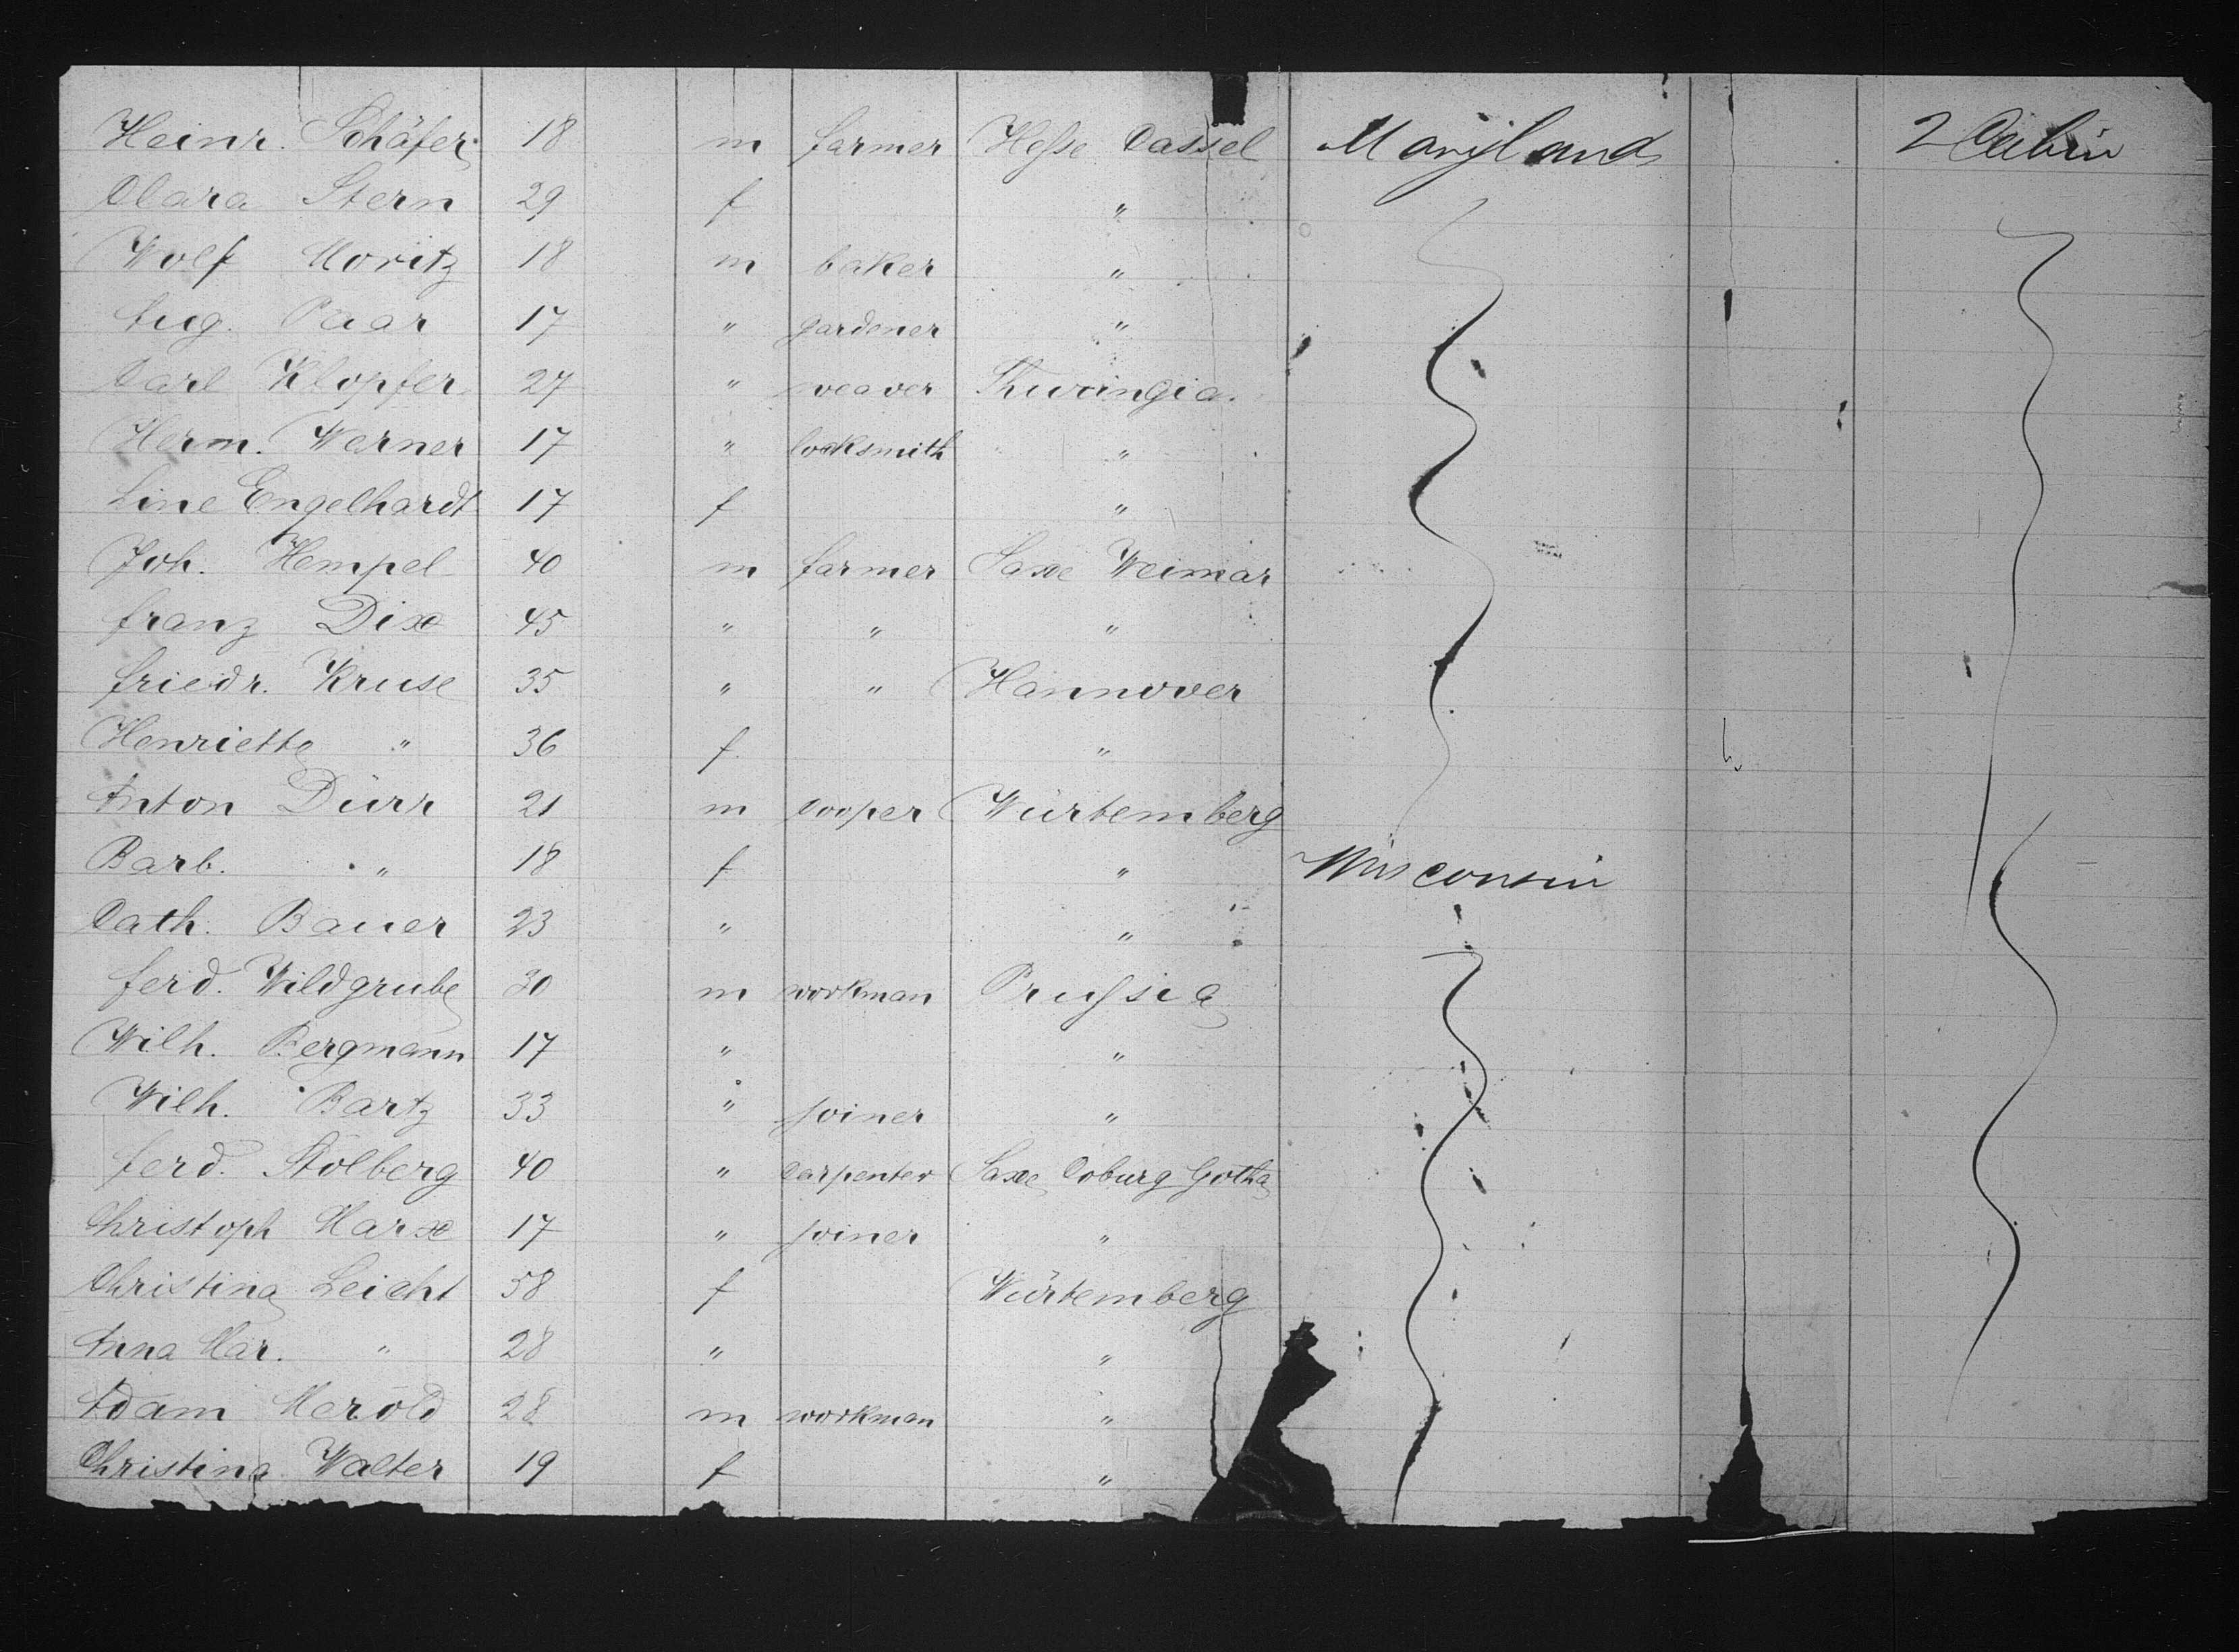 Heinr. Schäfer 18 m farmer Hesse Cassel Maryland 2 Cabin
Clara Stern 29 f "
Wolf Moritz 18 m baker "
Aug. Paar 17 " gardener "
Carl Klopfer 27 " weaver Thuringia.
Herm. Werner 17 " locksmith "
Line Engelhardt 17 f "
Joh. Hempel 40 m farmer Saxe Weimar
Franz Dix 45 " " "
Friedr. Kruse 35 " " Hannover
Henriette " 36 f "
Anton Dürr 21 m cooper Würtemberg
Barb. " 18 f " Wisconsin
Cath. Bauer 23 " "
Ferd. Wildgrube 30 m workman Prussia
Wilh. Bergmann 17 " "
Wilh. Bartz 33 " joiner "
Ferd. Stolberg 40 " carpenter Saxe Coburg Gotha
Christoph Marx 17 " joiner "
Christina Leicht 58 f Würtemberg
Anna Mar. " 28 " "
Adam Merold 28 m workman "
Christina Walter 19 f "